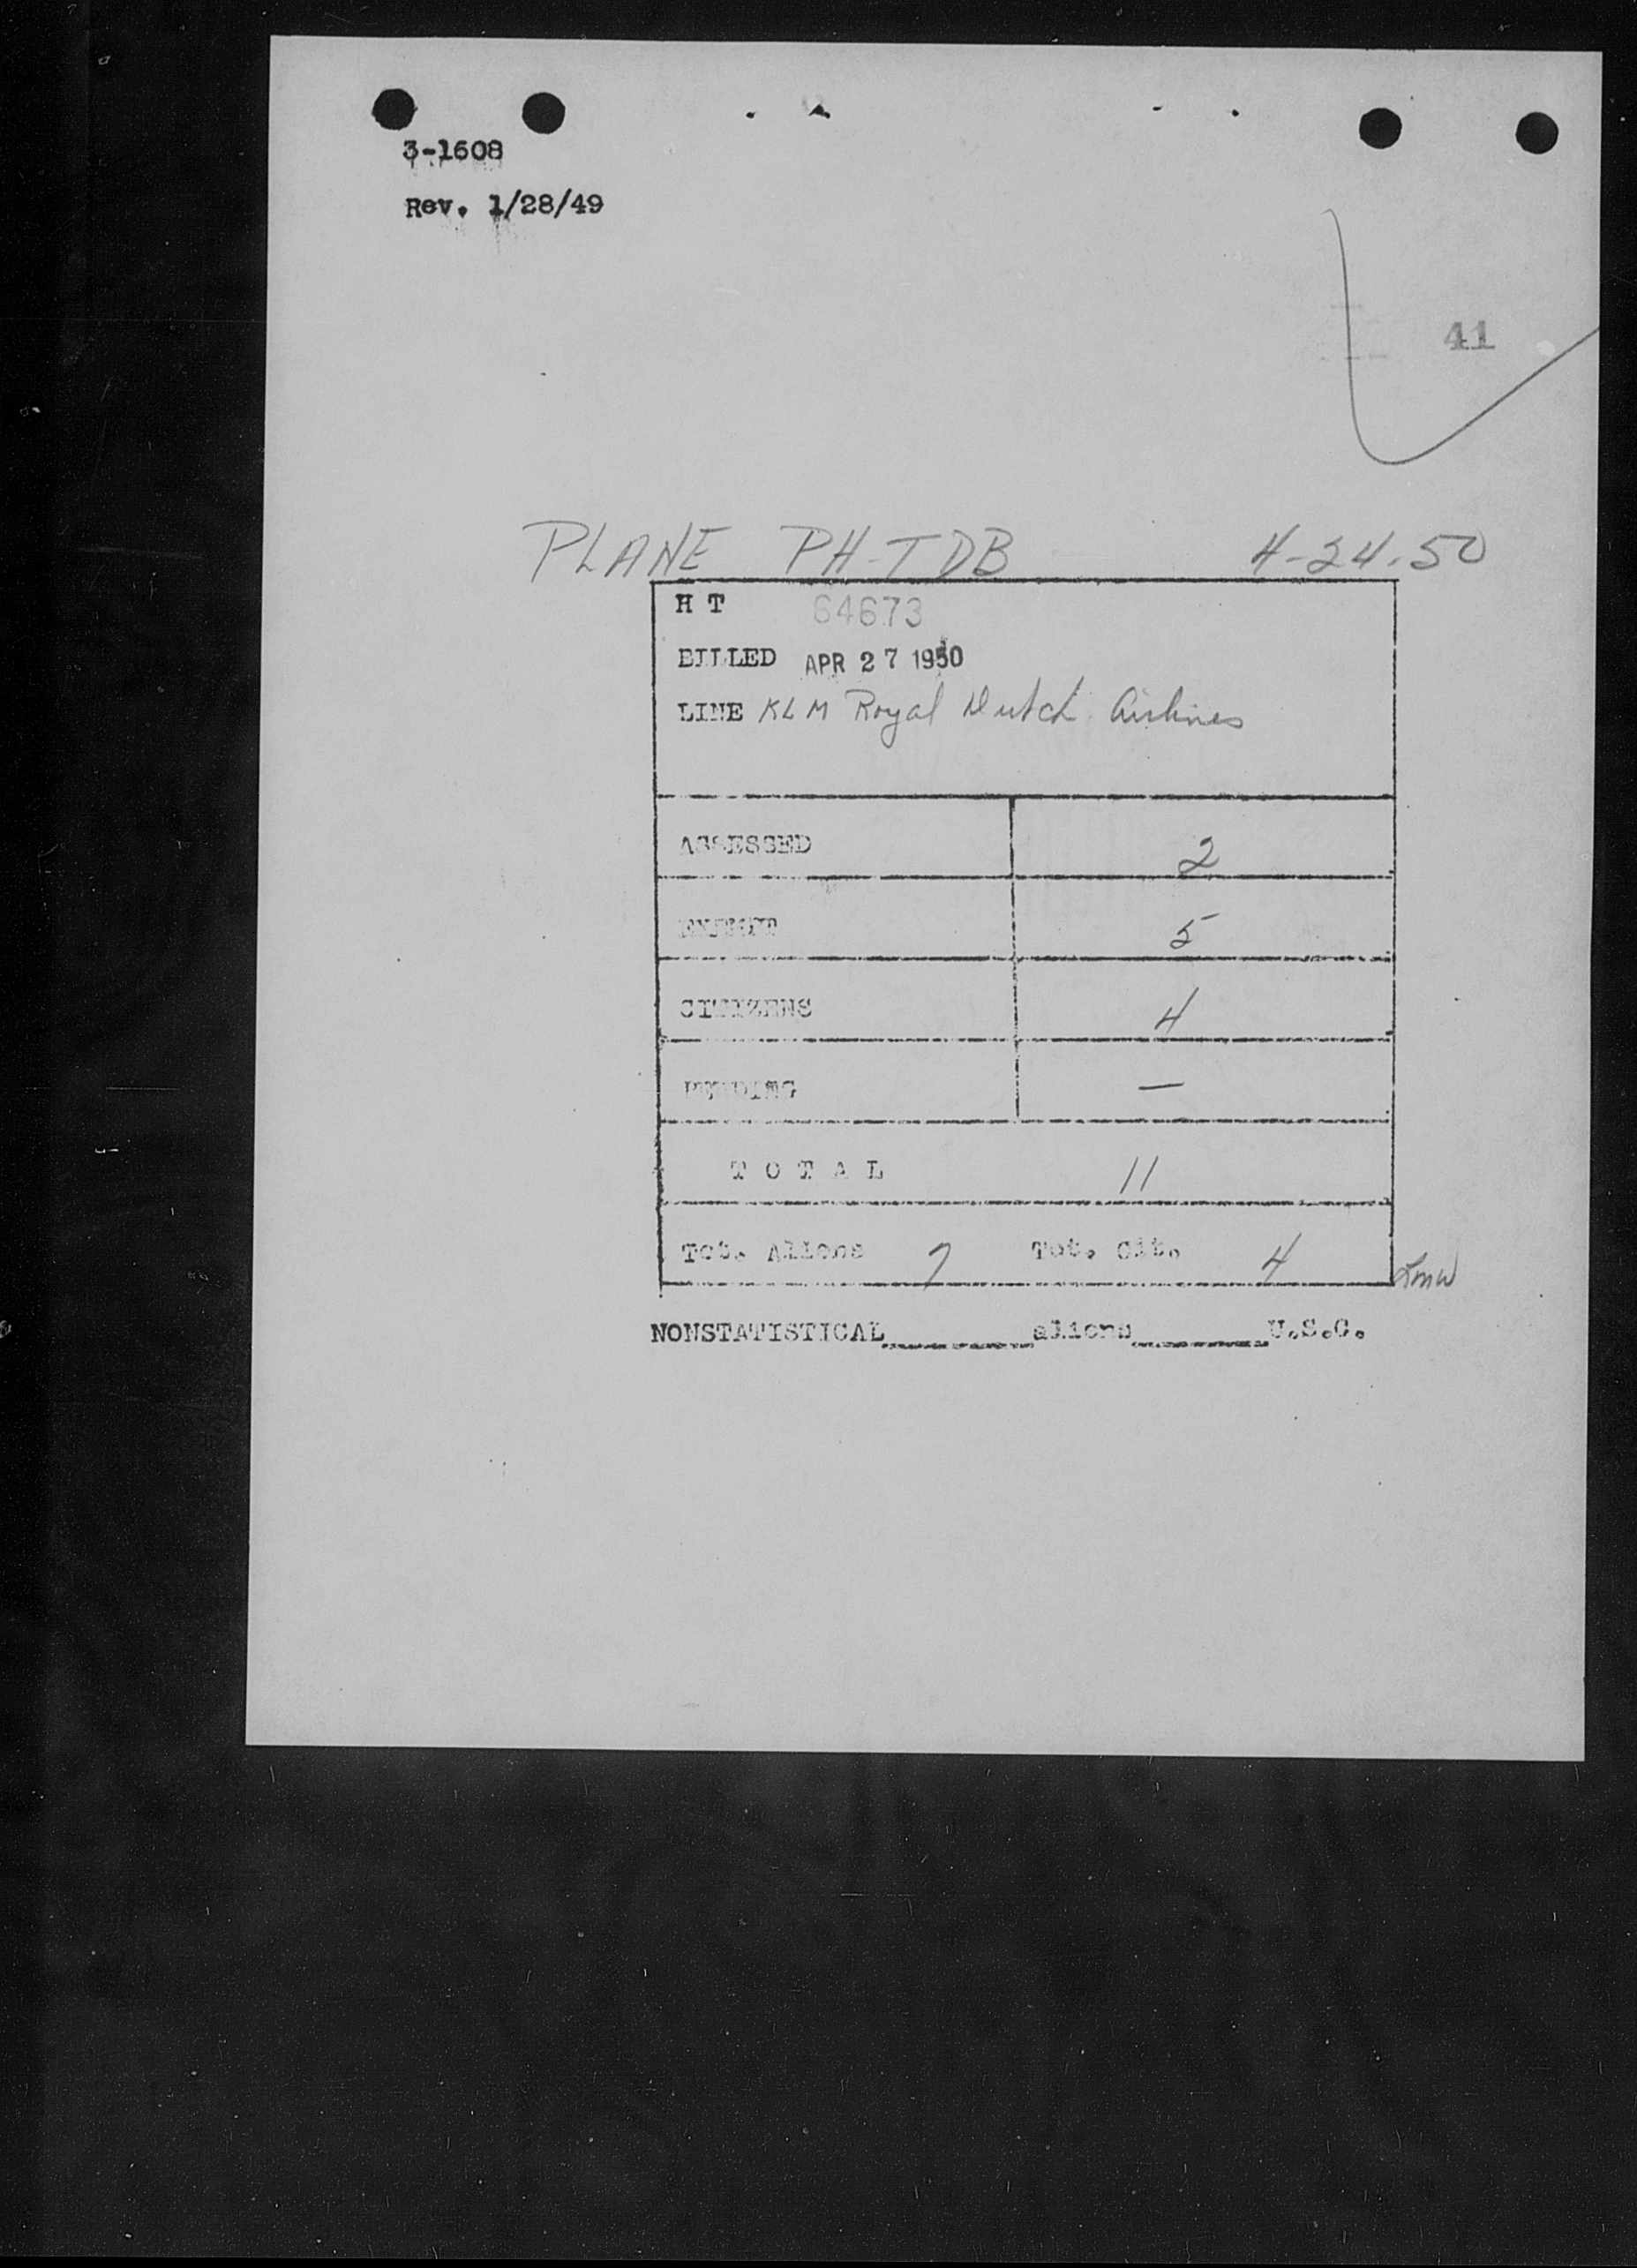 3-1608
Rev. 1/28/49
41
PLANE PH-TDB 4-24-50
H T 64673
BILLED APR 27 1950
LINE KLM Royal Dutch Airlines
ASSESSED 2
EXEMPT 5
CITIZENS 4
PENDING —
T O T A L 11
Tot. Aliens 7 Tot. Cit. 4
NONSTATISTICAL________aliens________U.S.C.